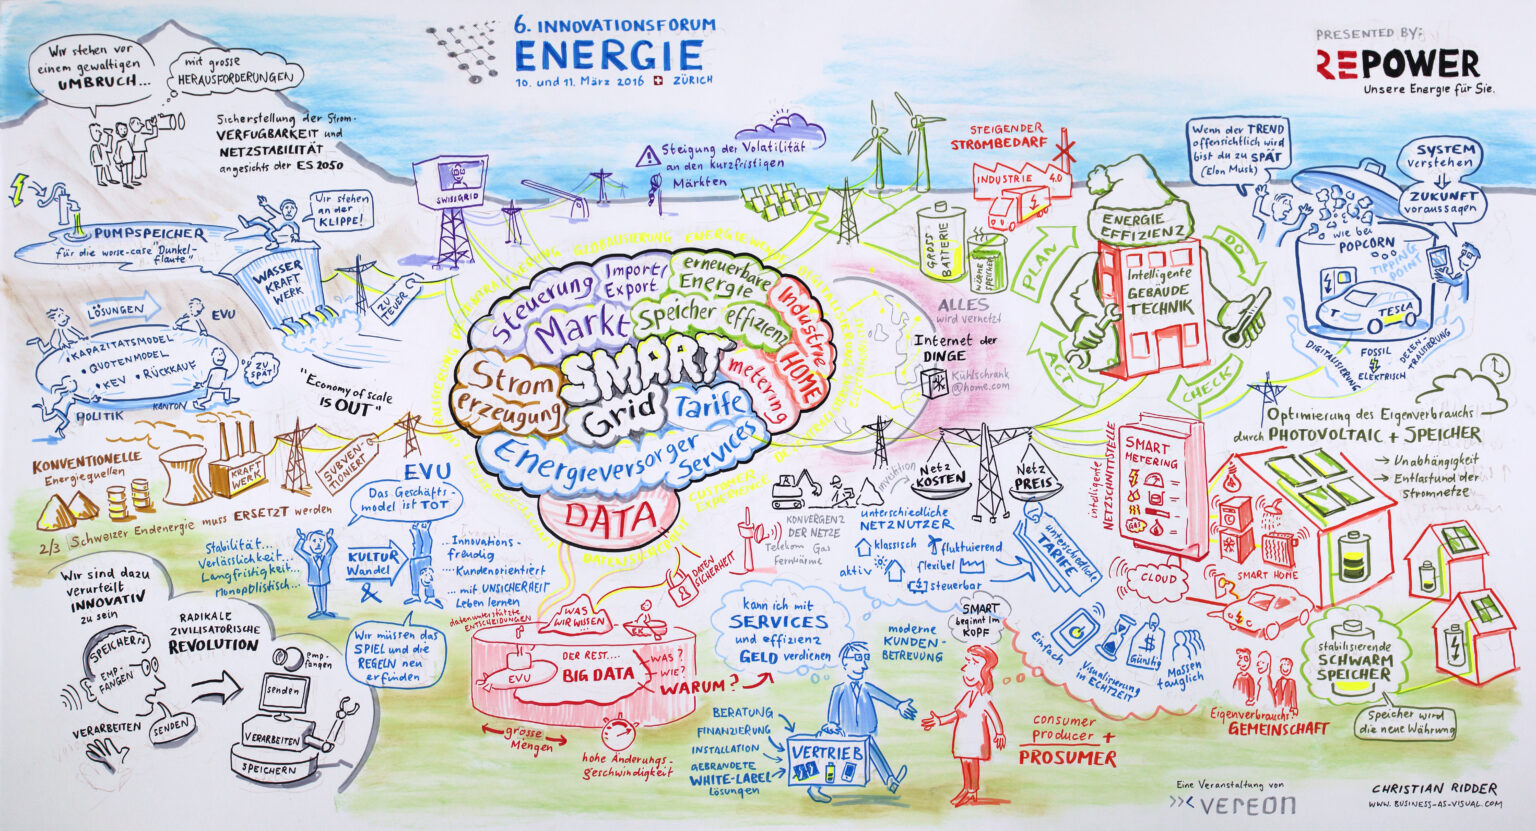 6. INNOVATIONSFORUM
ENERGIE
10. und 11. März 2016 ZÜRICH
PRESENTED BY:
REPOWER
Unsere Energie für Sie.
Wir stehen vor
einem gewaltigen
UMBRUCH...
mit grosse
HERAUSFORDERUNGEN
Sicherstellung der Strom-
VERFÜGBARKEIT und
NETZSTABILITÄT
angesichts der ES 2050
PUMPSPEICHER
für die worse-case "Dunkel-
flaute"
Wir stehen
an der
KLIPPE!
WASSER
KRAFT
WERK
ZU
TEUER
LÖSUNGEN
EVU
• KAPAZITÄTSMODEL
• QUOTENMODEL
• KEV • RÜCKAUF
ZU
SPÄT!
POLITIK
KANTON
"Economy of scale
IS OUT"
SWISSGRID
Steigung der Volatilität
an den kurzfristigen
Märkten
STEIGENDER
STROMBEDARF
INDUSTRIE 4.0
GROSS
BATTERIE
WÄRME
SPEICHER
ENERGIE
EFFIZIENZ
Intelligente
GEBÄUDE
TECHNIK
PLAN
DO
CHECK
ACT
Wenn der TREND
offensichtlich wird
bist du zu SPÄT
(Elon Musk)
SYSTEM
verstehen
ZUKUNFT
voraussagen
wie bei
POPCORN
TIPPING
POINT
T
TESLA
DIGITALISIERUNG
FOSSIL
ELEKTRISCH
DEZEN-
TRALISIERUNG
Steuerung
Import/
Export
erneuerbare
Energie
Markt
Speicher effizienz
Industrie
HOME
SMART
Grid
metering
Strom
erzeugung
Tarife
Energieversorger
Services
DATA
GLOBALISIERUNG
CUSTOMER
EXPERIENCE
ALLES
wird vernetzt
Internet der
DINGE
Kühlschrank
@home.com
KONVENTIONELLE
Energiequellen
KRAFT
WERK
SUBVEN-
TIONIERT
2/3 Schweizer Endenergie muss ERSETZT werden
EVU
Das Geschäfts-
model ist TOT
Stabilität...
Verlässlichkeit...
Langfristigkeit...
Monopolistisch...
KULTUR
Wandel
&
... Innovations-
freudig
... Kundenorientiert
... mit UNSICHERHEIT
Leben lernen
Wir müssen das
SPIEL und die
REGELN neu
erfinden
Wir sind dazu
verurteilt
INNOVATIV
zu sein
RADIKALE
ZIVILISATORISCHE
REVOLUTION
SPEICHERN
EMP-
FANGEN
VERARBEITEN
SENDEN
emp-
fangen
senden
VERARBEITEN
SPEICHERN
datenunterstützte
ENTSCHEIDUNGEN
WAS
WIR WISSEN
DER REST....
EVU
BIG DATA
WAS?
WIE?
WARUM?
grosse
Mengen
hohe Änderungs-
geschwindigkeit
DATEN
SICHERHEIT
KONVERGENZ
DER NETZE
Telekom Gas
Fernwärme
Investition
Netz
KOSTEN
Netz
PREIS
unterschiedliche
NETZNUTZER
klassisch
fluktuierend
aktiv
flexibel
steuerbar
unterschiedliche
TARIFE
kann ich mit
SERVICES
und effizienz
GELD verdienen
moderne
KUNDEN-
BETREUUNG
SMART
beginnt im
KOPF
BERATUNG
FINANZIERUNG
INSTALLATION
GEBRANDETE
WHITE-LABEL
Lösungen
VERTRIEB
consumer
producer +
PROSUMER
Einfach
Visualisierung
in ECHTZEIT
Günstig
Massen
tauglich
intelligente
NETZSCHNITTSTELLE
SMART
METERING
GAS
CLOUD
SMART HOME
Optimierung des Eigenverbrauchs
durch PHOTOVOLTAIC + SPEICHER
→ Unabhängigkeit
→ Entlastung der
Stromnetze
Eigenverbrauchs-
GEMEINSCHAFT
stabilisierende
SCHWARM
SPEICHER
Speicher wird
die neue Währung
Eine Veranstaltung von
VEREON
CHRISTIAN RIDDER
WWW.BUSINESS-AS-VISUAL.COM